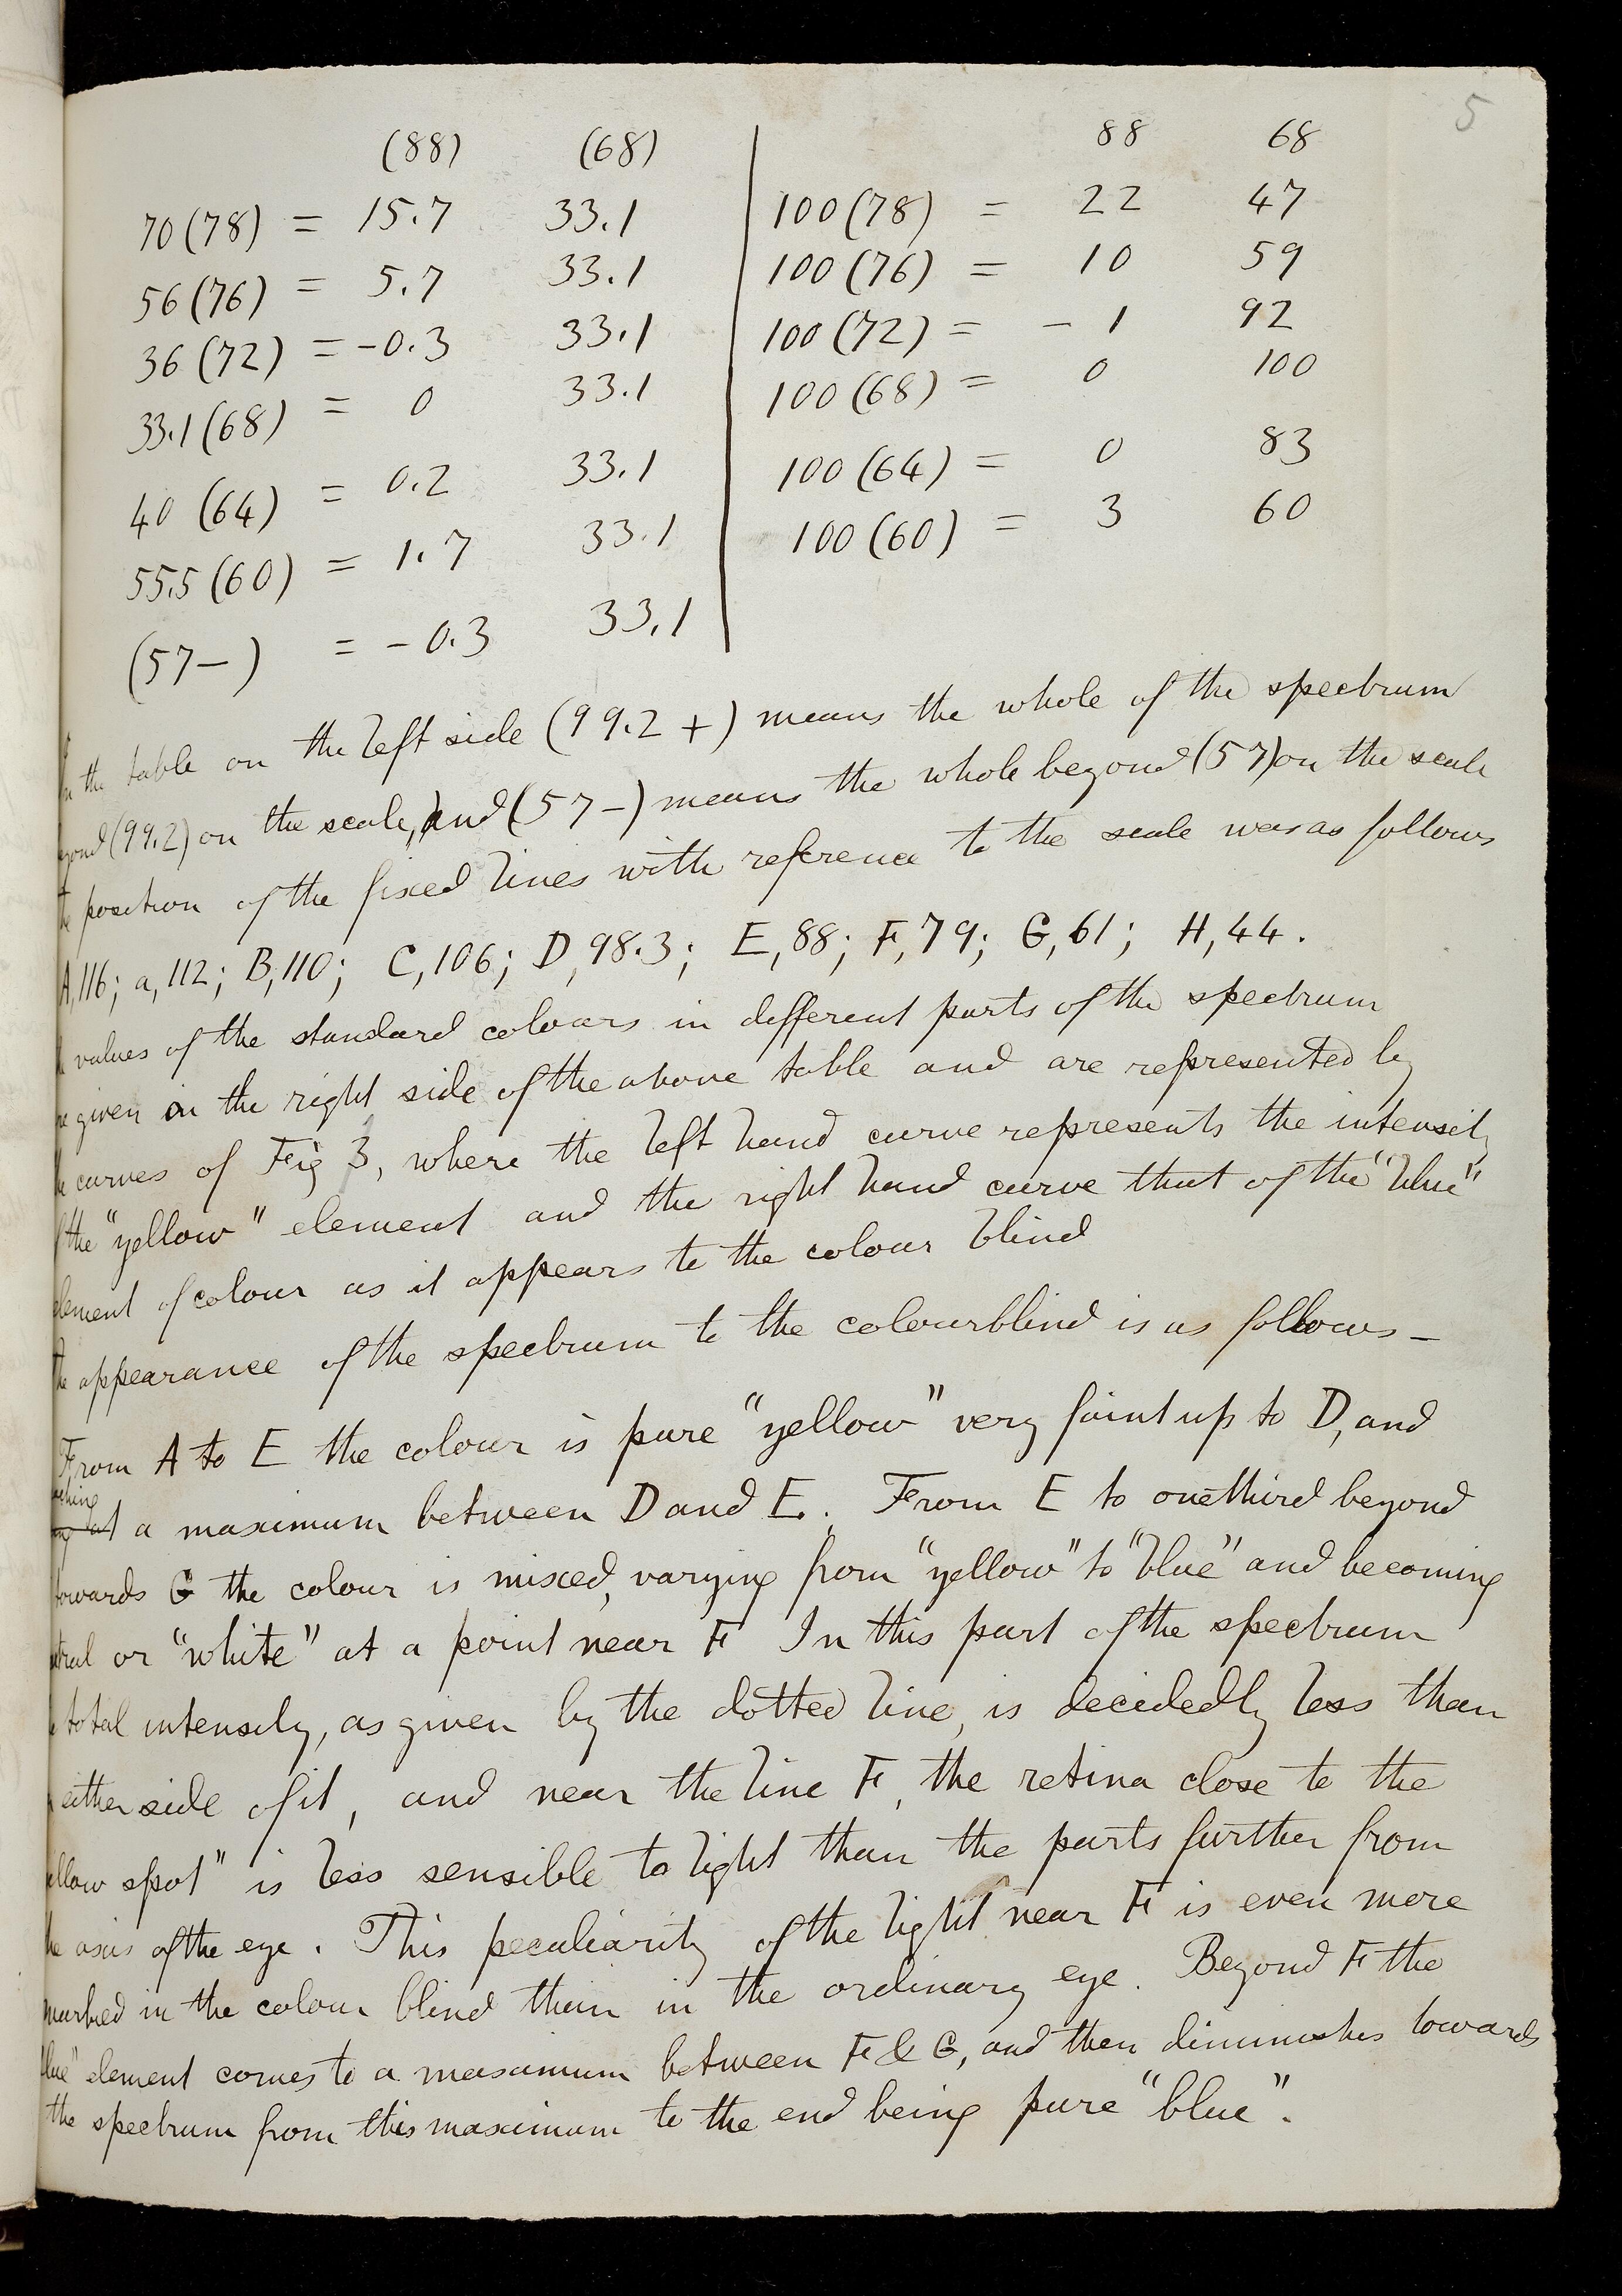 5
(88) (68) 88 68
70 (78) = 15.7 33.1 100 (78) = 22 47
56 (76) = 5.7 33.1 100 (76) = 10 59
36 (72) = -0.3 33.1 100 (72) = - 1 92
33.1 (68) = 0 33.1 100 (68) = 0 100
40 (64) = 0.2 33.1 100 (64) = 0 83
55.5 (60) = 1.7 33.1 100 (60) = 3 60
(57-) = -0.3 33.1
the table on the left side (99.2 +) means the whole of the spectrum
yond (99.2) on the scale, and (57-) means the whole beyond (57) on the scale
position of the fixed lines with reference to the scale was as follows
A,116; a,112; B,110; C,106; D,98.3; E,88; F,79; G,61; H,44.
values of the standard colours in different parts of the spectrum
given on the right side of the above table and are represented by
curves of Fig 3, where the left hand curve represents the intensity
the "yellow" element and the right hand curve that of the "blue"
element of colour as it appears to the colour blind
appearance of the spectrum to the colourblind is as follows –
From A to E the colour is pure "yellow" very faint up to D, and
ching
a maximum between D and E. From E to one third beyond
towards G the colour is mixed, varying from "yellow" to "blue" and becoming
tral or "white" at a point near F In this part of the spectrum
total intensity, as given by the dotted line, is decidedly less than
either side of it, and near the line F, the retina close to the
ellow spot" is less sensible to light than the parts further from
he axis of the eye. This peculiarity of the light near F is even more
marked in the colour blind than in the ordinary eye. Beyond F the
lue" element comes to a maximum between F & G, and then diminishes towards
the spectrum from this maximum to the end being pure "blue".